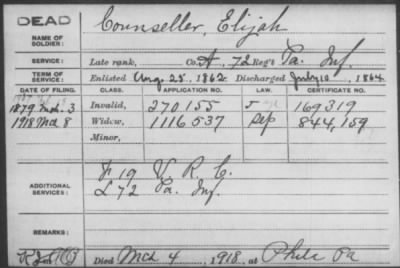 DEAD
NAME OF SOLDIER: Counseller, Elijah
SERVICE: Late rank, Co. A, 72 Reg't Pa. Inf.
TERM OF SERVICE: Enlisted Aug. 25, 1862 Discharged July 10, 1864.
DATE OF FILING. CLASS. APPLICATION NO. LAW. CERTIFICATE NO.
1879 Mch. 3 Invalid, 270.155 169319
1918 Mch 8 Widow, 1116537 Sep 844,159
Minor,
ADDITIONAL SERVICES: F 19 V. R. C.
L 72 Pa. Inf.
REMARKS:
Died Mch 4, 1918, at Phila Pa